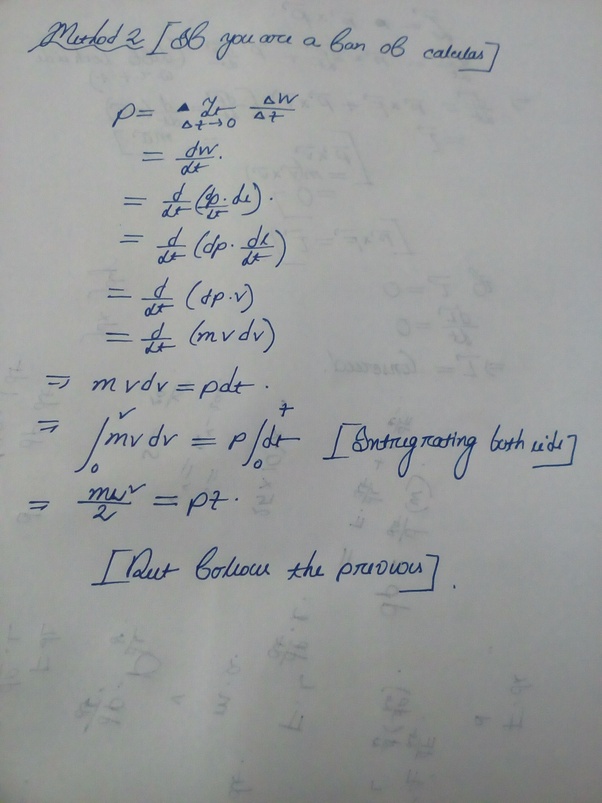 Method 2 [If you are a fan of calculas]
P = Lt Δt→0 ΔW/Δt
= dW/dt.
= d/dt (dp/dt · ds).
= d/dt (dp · ds/dt)
= d/dt (dp · v)
= d/dt (mv dv)
⇒ mvdv = pdt.
⇒ ∫₀ᵛ mv dv = P ∫₀ᵗ dt [Intrigrating both side]
⇒ mv²/2 = pt.
[Rest follow the previous].